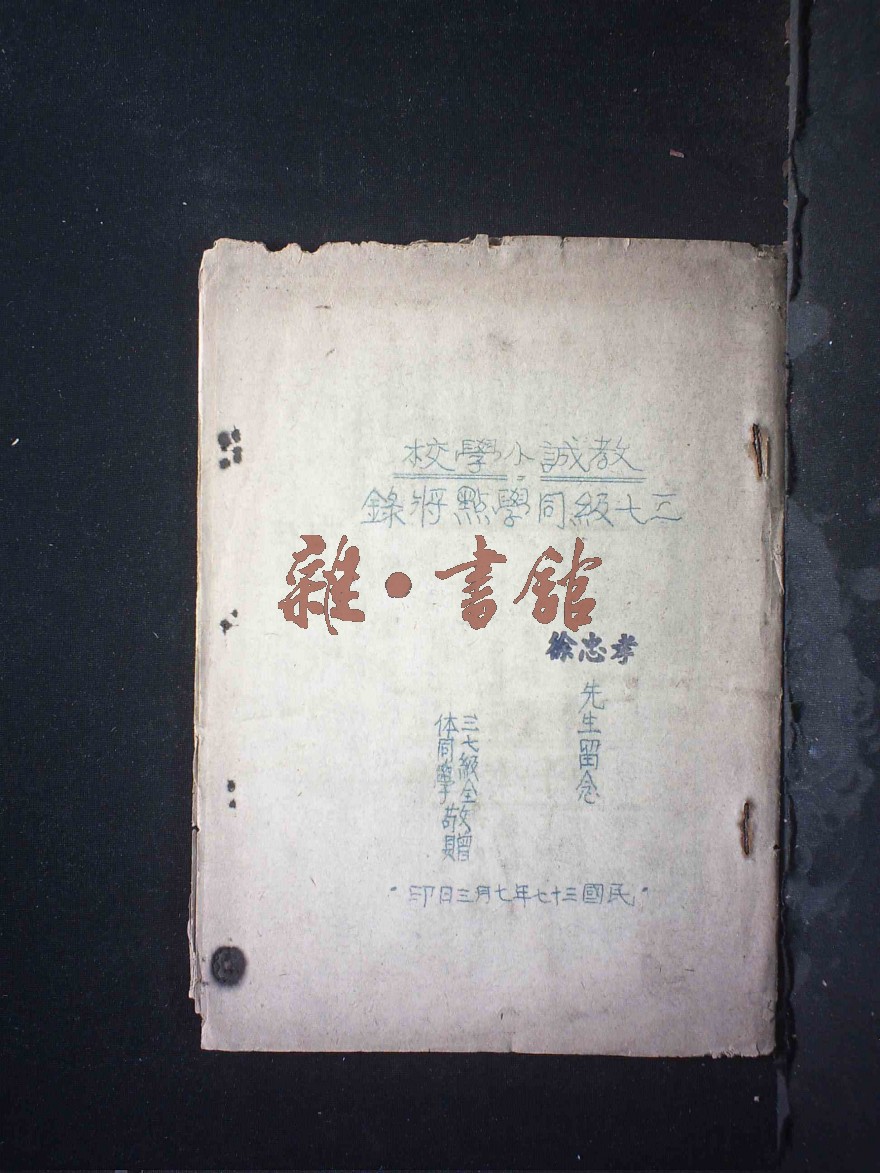 教誠小學校
三七級同學點將錄
雜·書館
徐忠孝
先生留念
三七級全
体同學敬贈
·民國三十七年七月三日印·